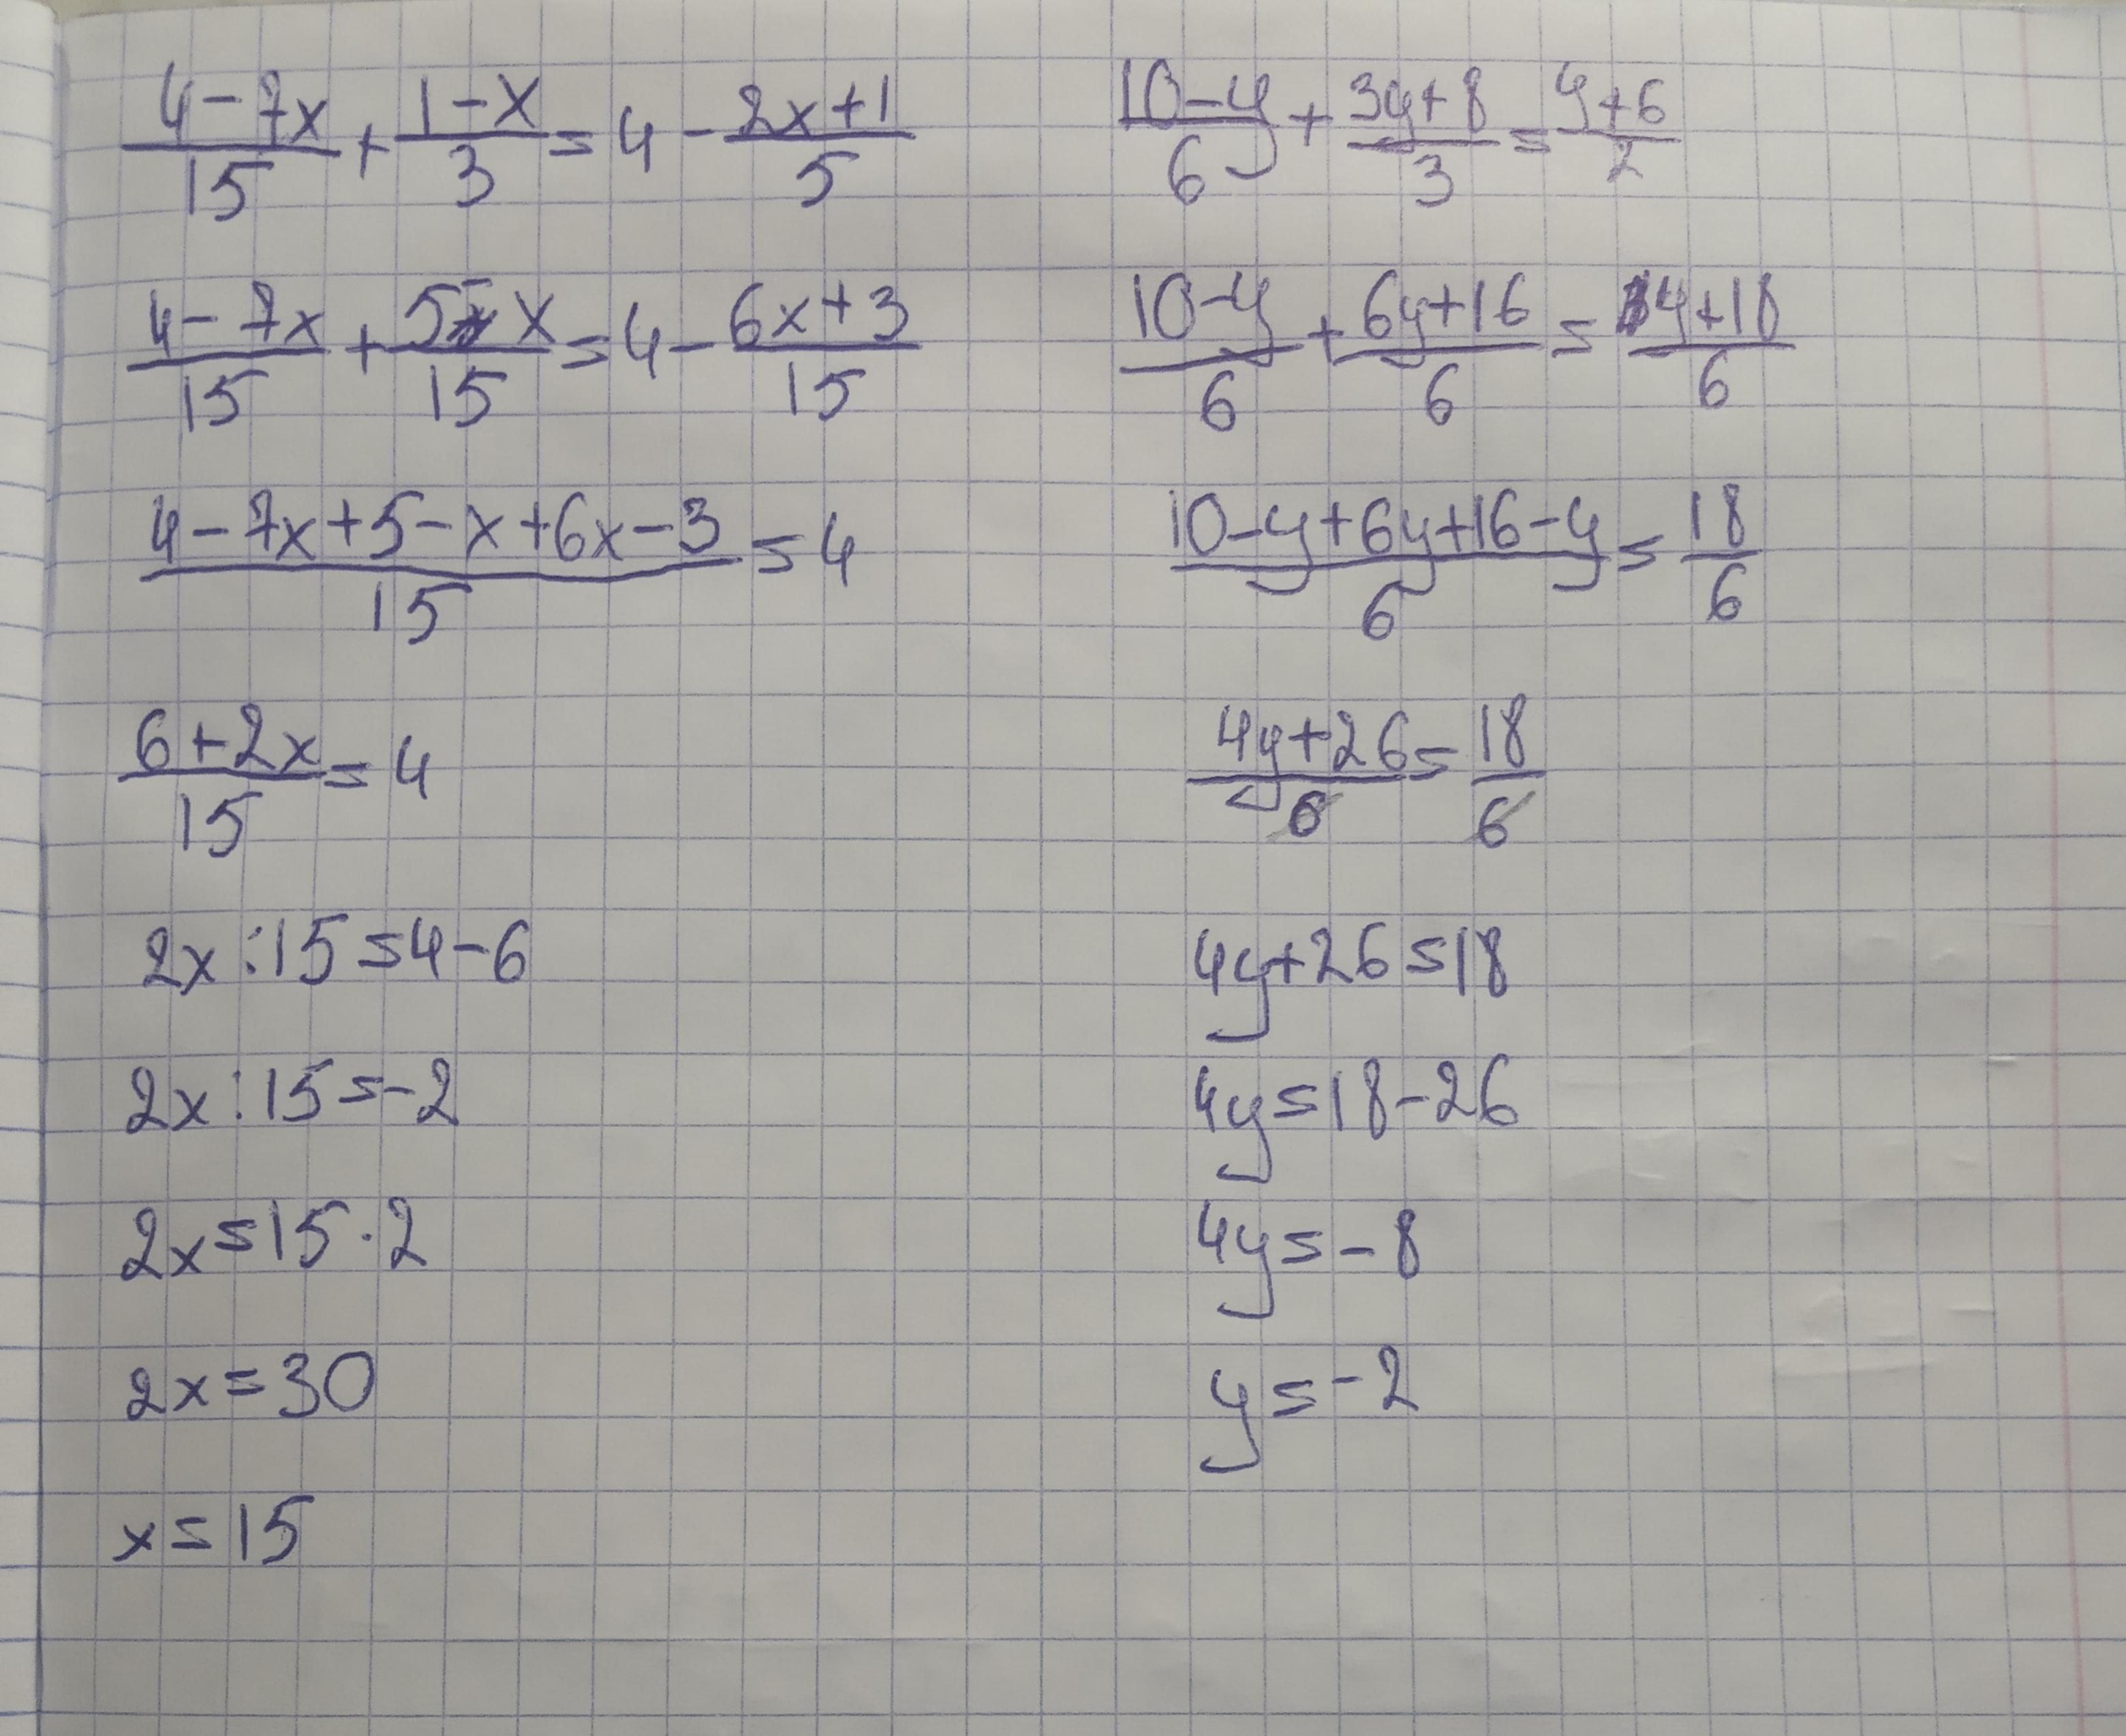 (4-7x)/15 + (1-x)/3 = 4 - (2x+1)/5
(4-7x)/15 + (5-x)/15 = 4 - (6x+3)/15
(4-7x+5-x+6x-3)/15 = 4
(6+2x)/15 = 4
2x:15=4-6
2x:15=-2
2x=15·2
2x=30
x=15
(10-y)/6 + (3y+8)/3 = (y+6)/2
(10-y)/6 + (6y+16)/6 = (y+18)/6
(10-y+6y+16-y)/6 = 18/6
(4y+26)/6 = 18/6
4y+26=18
4y=18-26
4y=-8
y=-2